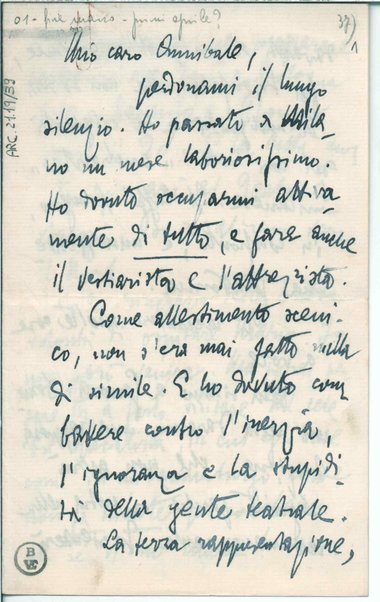 01 - fine marzo - primi aprile?
37)
1
ARC. 21 19/39
Mio caro Annibale,
perdonami il lungo
silenzio. Ho passato a Mila-
no un mese laboriosissimo.
Ho dovuto occuparmi attiva-
mente di tutto, e fare anche
il vestiarista e l'attrezzista.
Come allestimento sceni-
co, non s'era mai fatto nulla
di simile. E ho dovuto com
battere contro l'inerzia,
l'ignoranza e la stupidi-
tà della gente teatrale.
La terza rappresentazione,
B
VE